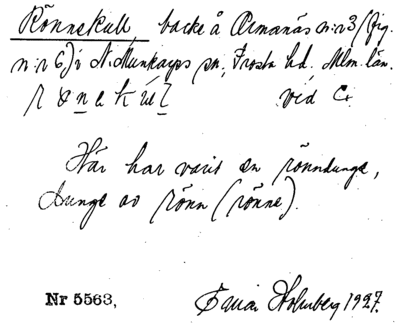 Rönnekull, backe å Ormanäs n:r 3 (fig.
n:r 6) i N. Munkarps sn, Frosta hd, Mlm. län.
vid C.
Här har varit en rönndunge,
dunge av rönn (rönne).
Nr 5563, Holmberg 1927.